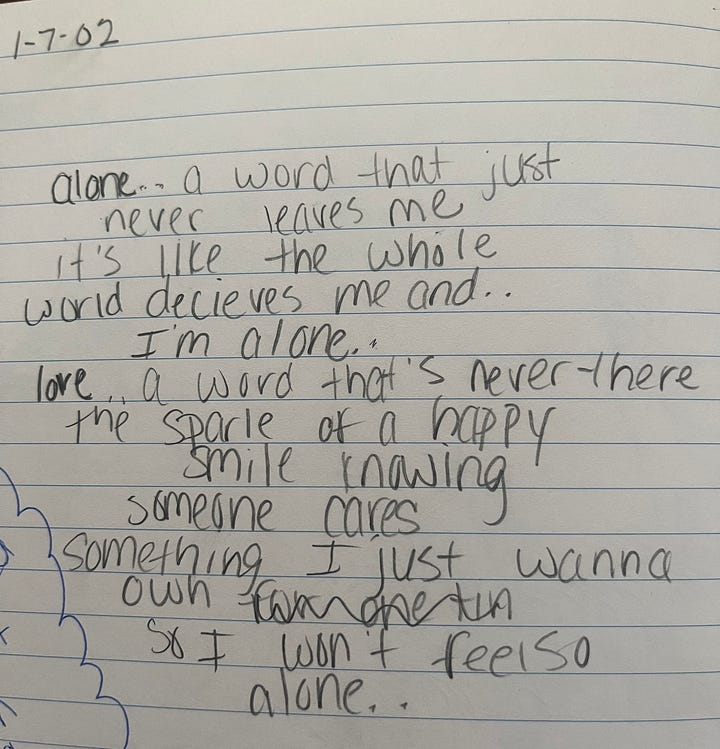 1-7-02
alone.. a word that just
never leaves me
it's like the whole
world decieves me and..
I'm alone..
love.. a word that's never there
the sparle of a happy
smile knowing
someone cares
something I just wanna
own
so I won't feel so
alone..